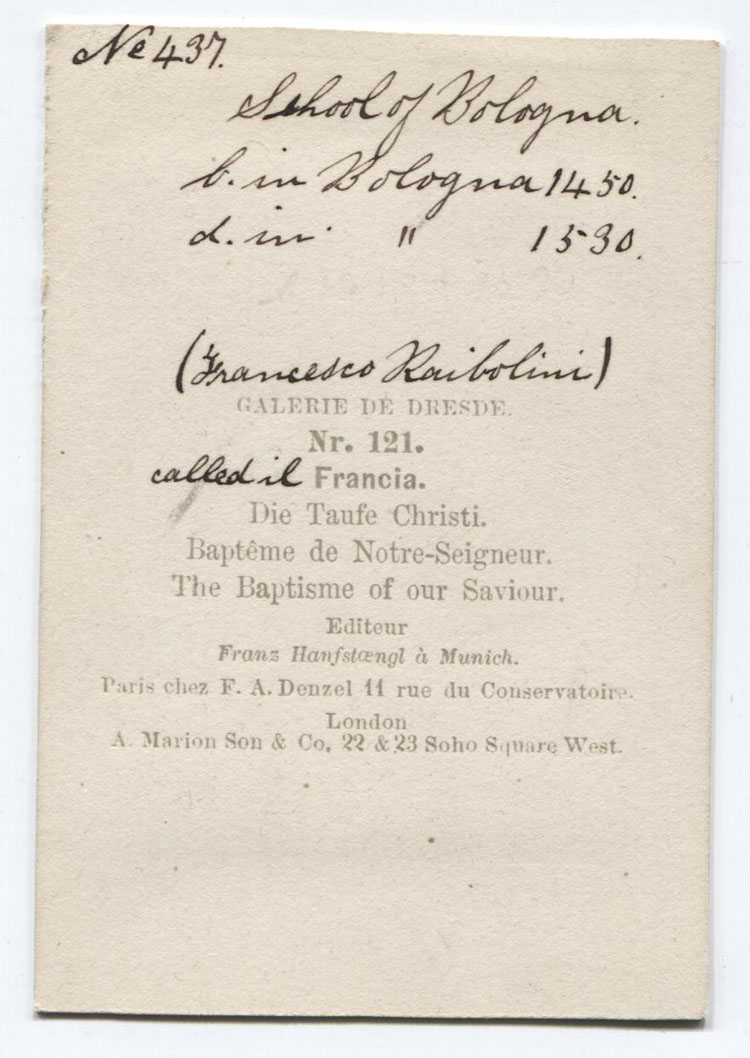 No 437.
School of Bologna.
b. in Bologna 1450.
d. in " 1530.
(Francesco Raibolini)
GALERIE DE DRESDE.
Nr. 121.
called il Francia.
Die Taufe Christi.
Baptême de Notre-Seigneur.
The Baptisme of our Saviour.
Editeur
Franz Hanfstœngl à Munich.
Paris chez F. A. Denzel 11 rue du Conservatoire.
London
A. Marion Son & Co. 22 & 23 Soho Square West.